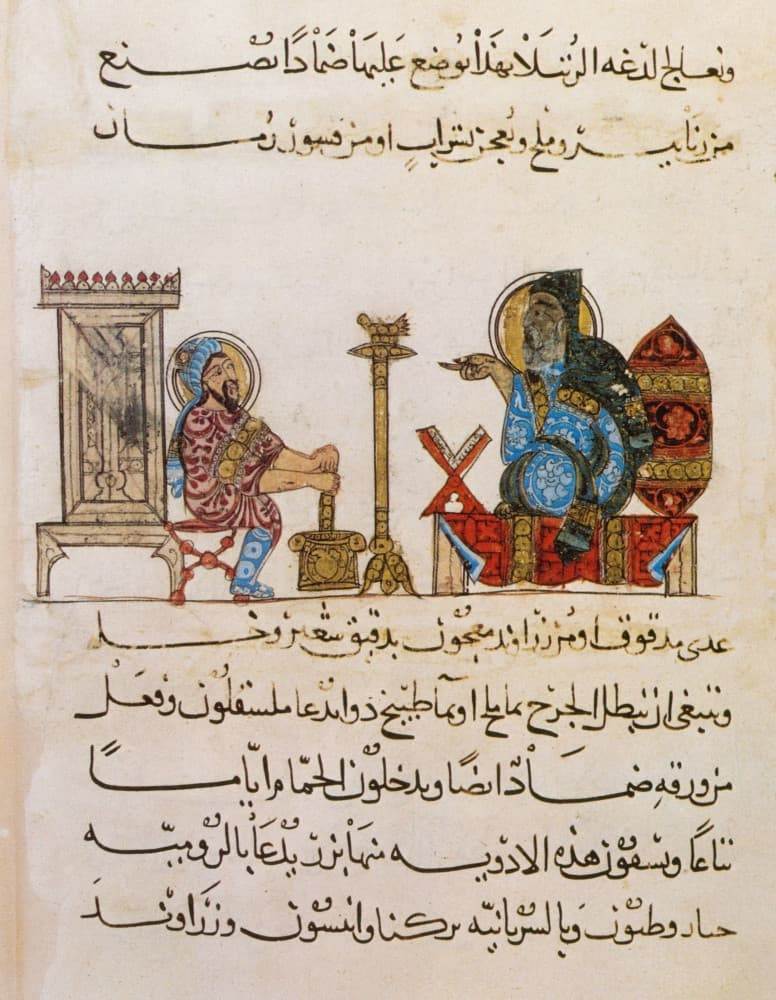 وتعالج لدغه الرتيلا بهذا يوضع عليها ضمادا يصنع
من رماد وملح ويعجن بشراب او من قسور رمان
مدقوق او من زراوند معجون بدقيق شعير وخل
وينبغي ان ينطل الجرح بما ملح او بما طبيخ دوا يدعا
من ورقه ضمادا ايضا ويدخلون الحمام اياما
تباعا ويسقون هذه الادويه منها بزر يدعا بالروميه
وبالسريانيه وانيسون وزراوند